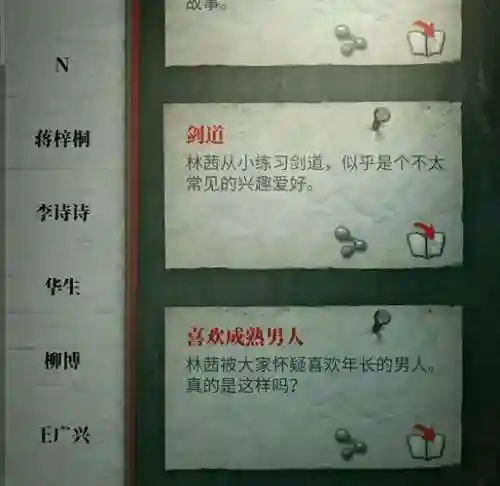 故事。
N
蒋梓桐
李诗诗
华生
柳博
王广兴
剑道
林茜从小练习剑道，似乎是个不太
常见的兴趣爱好。
喜欢成熟男人
林茜被大家怀疑喜欢年长的男人。
真的是这样吗？